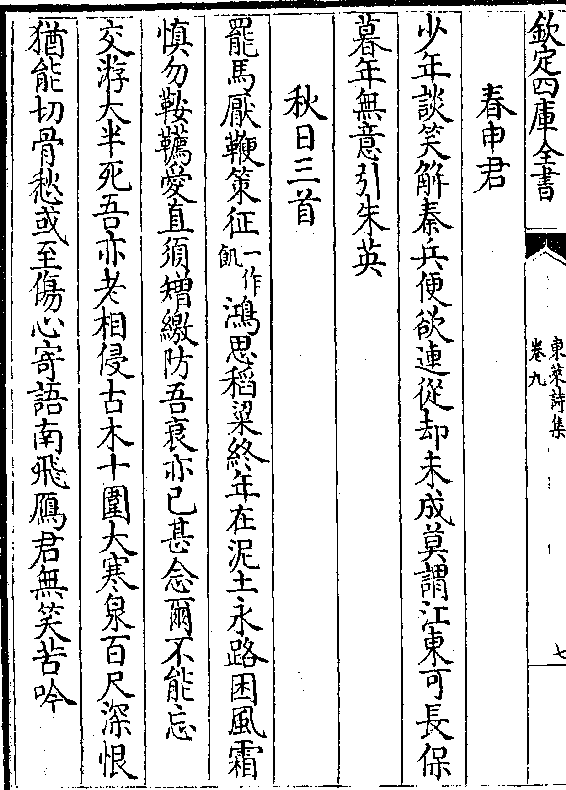 欽定四庫全書
東萊詩集
卷九
七
春申君
少年談笑解秦兵便欲連從却未成莫謂江東可長保
暮年無意引朱英
秋日三首
罷馬厭鞭策征一作飢鴻思稻粱終年在泥土永路困風霜
慎勿鞍韉愛直須矰繳防吾衰亦已甚念爾不能忘
交游大半死吾亦老相侵古木十圍大寒泉百尺深恨
猶能切骨愁或至傷心寄語南飛鴈君無笑苦吟